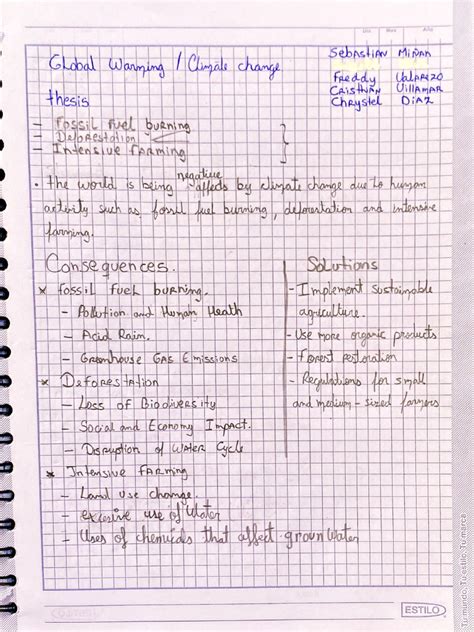 Día Mes Año
Global Warming / Climate change
Sebastian Miñan
Freddy Valarezo
Cristhian Villamar
Chrystel Diaz
thesis
- Fossil fuel burning
- Deforestation
- Intensive farming
• the world is being negative affects by climate change due to human
activity such as, fossil fuel burning, deforestation and intensive
farming.
Consequences.
* fossil fuel burning.
- Pollution and Human Health
- Acid Rain.
- Greenhouse Gas Emissions
* Deforestation
- Loss of Biodiversity
- Social and Economy Impact.
- Disruption of Water Cycle
* Intensive farming
- Land use change.
- excesive use of Water
- Uses of chemicals that affect groun water
Solutions
- Implement sustainable
agriculture.
- Use more organic products
- forest restoration
- Regulations for small
and medium-sized farmers
ESTILO
Tu mundo. Tu estilo. Tu marca